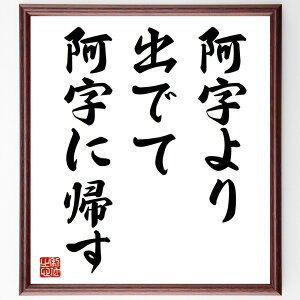 阿字より
出でて
阿字に帰す